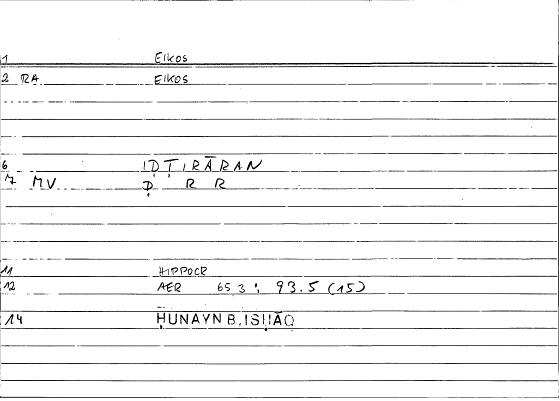 1 EIKOS
2 RA EIKOS
6 IḌṬIRĀRAN
7 MV Ḍ R R
11 HIPPOCR
12 AER 65 3 : 93.5 (15)
14 ḤUNAYN B. ISḤĀQ